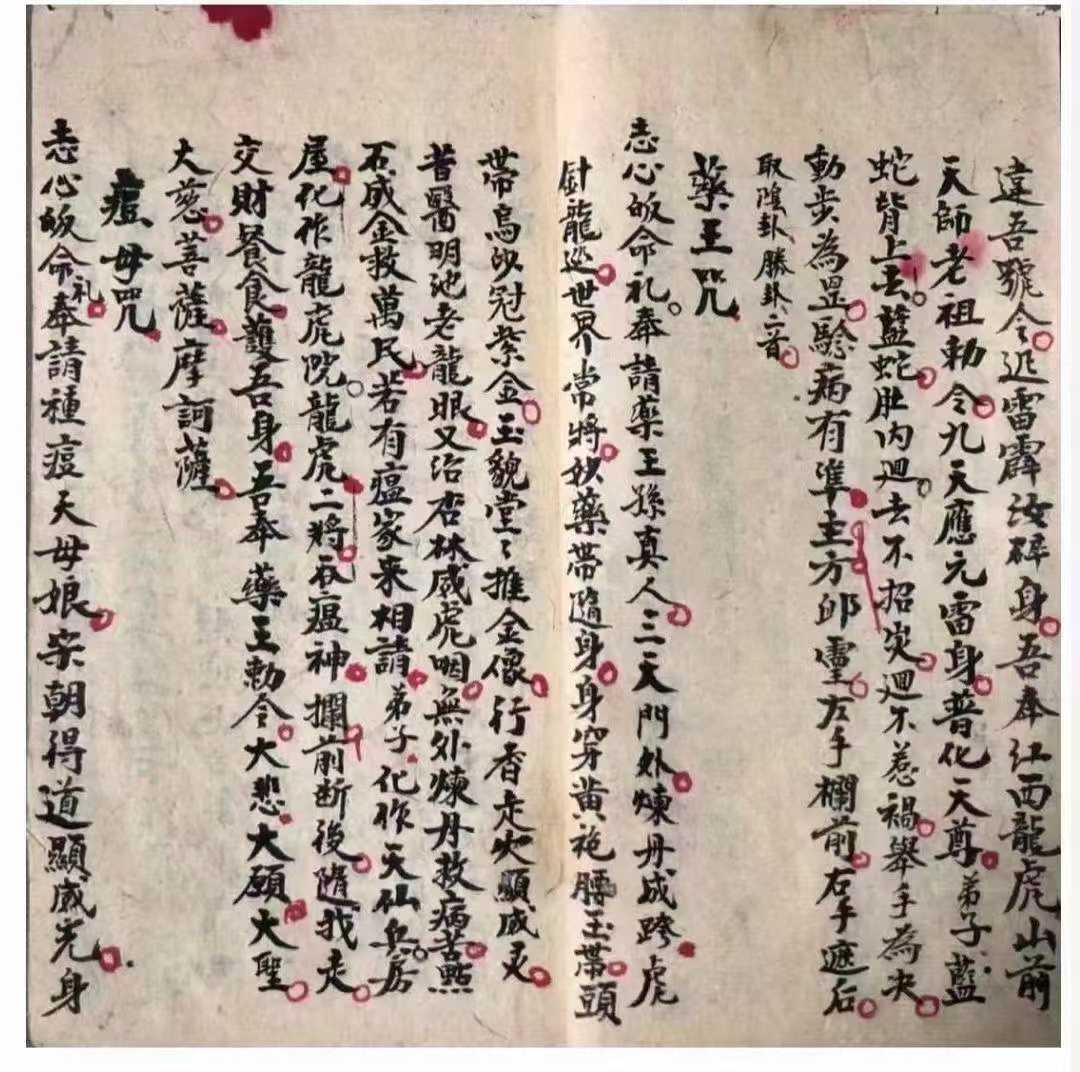 違吾號令迅雷霹汝碎身吾奉江西龍虎山前
天師老祖勅令九天應元雷身普化天尊弟子藍
蛇背上去藍蛇肚内迴去不招災迴不惹禍舉手為决
動步為罡騐病有準主方卯靈左手欄前右手遮后
取陰卦勝卦二首
藥王咒
志心皈命礼奉請藥王孫真人三天門外煉丹成跨虎
針龍巡世界常將妖藥帶隨身身穿黄袍腰玉帶頭
帶烏紗冠紫金玉貌堂〻推金像行香走火顯威灵
昔醫明池老龍眼又治杏林威虎咽無外煉丹救病苦點
石成金救萬民若有瘟家來相請弟子化作天仙兵房
屋化作龍虎院龍虎二將吞瘟神攔前断後隨我走
交財餐食護吾身吾奉藥王勅令大悲大願大聖
大慈菩薩摩訶薩
痘母咒
志心皈命礼奉請種痘天母娘宋朝得道顯威光身